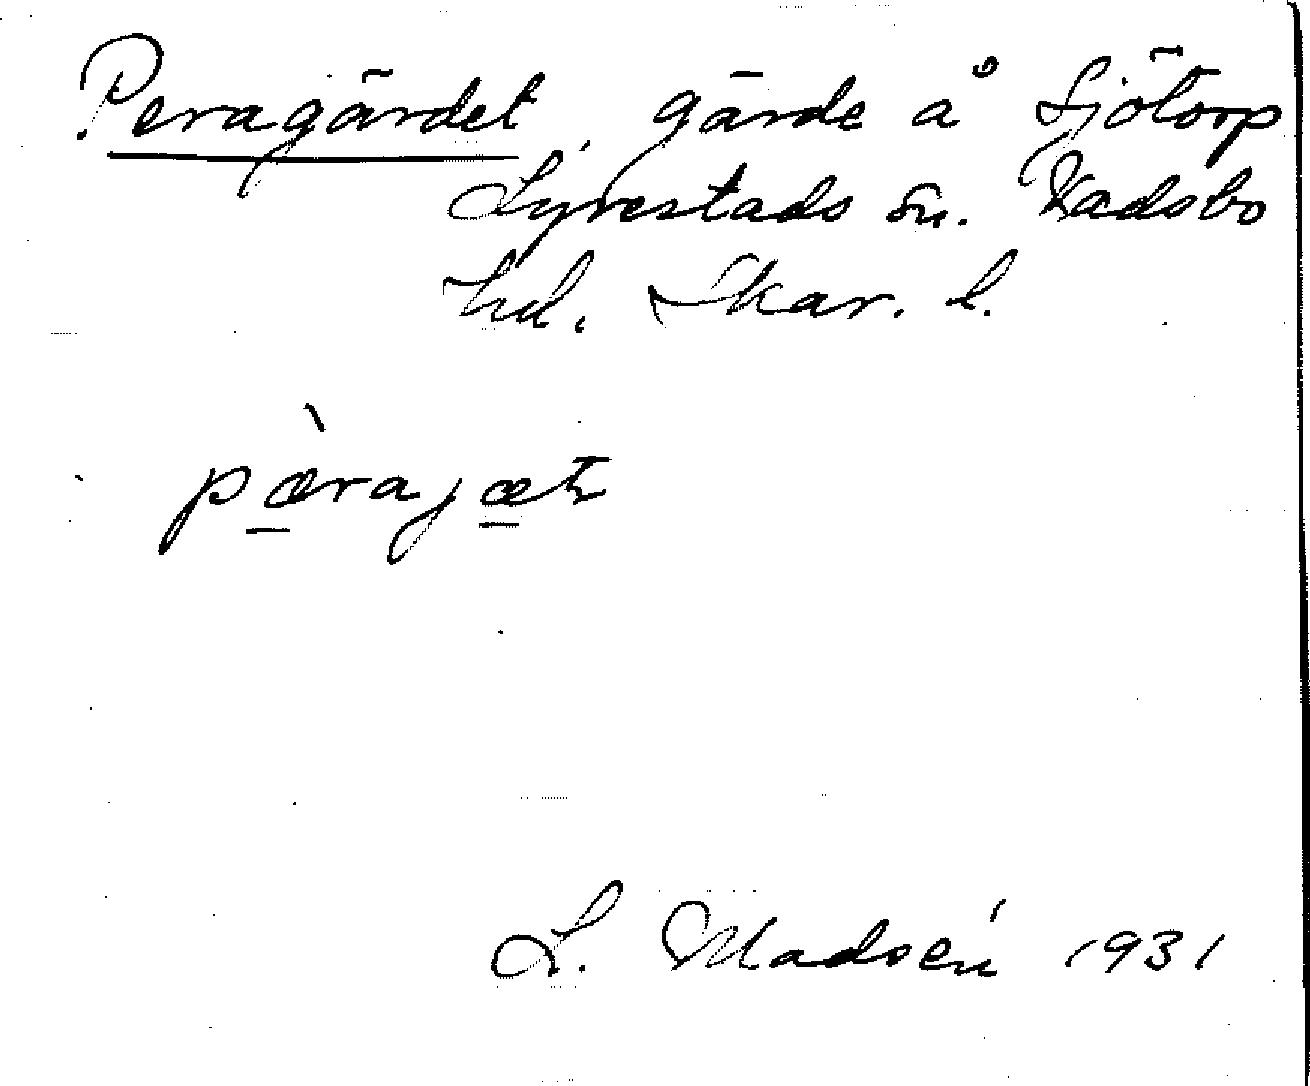 Peragärdet, gärde å Sjötorp
Lyrestads sn. Vadsbo
hd. Skar. l.
pæ̲̀rajæ̲t
L. Madsén 1931